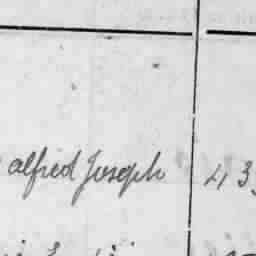 alfred Joseph 43